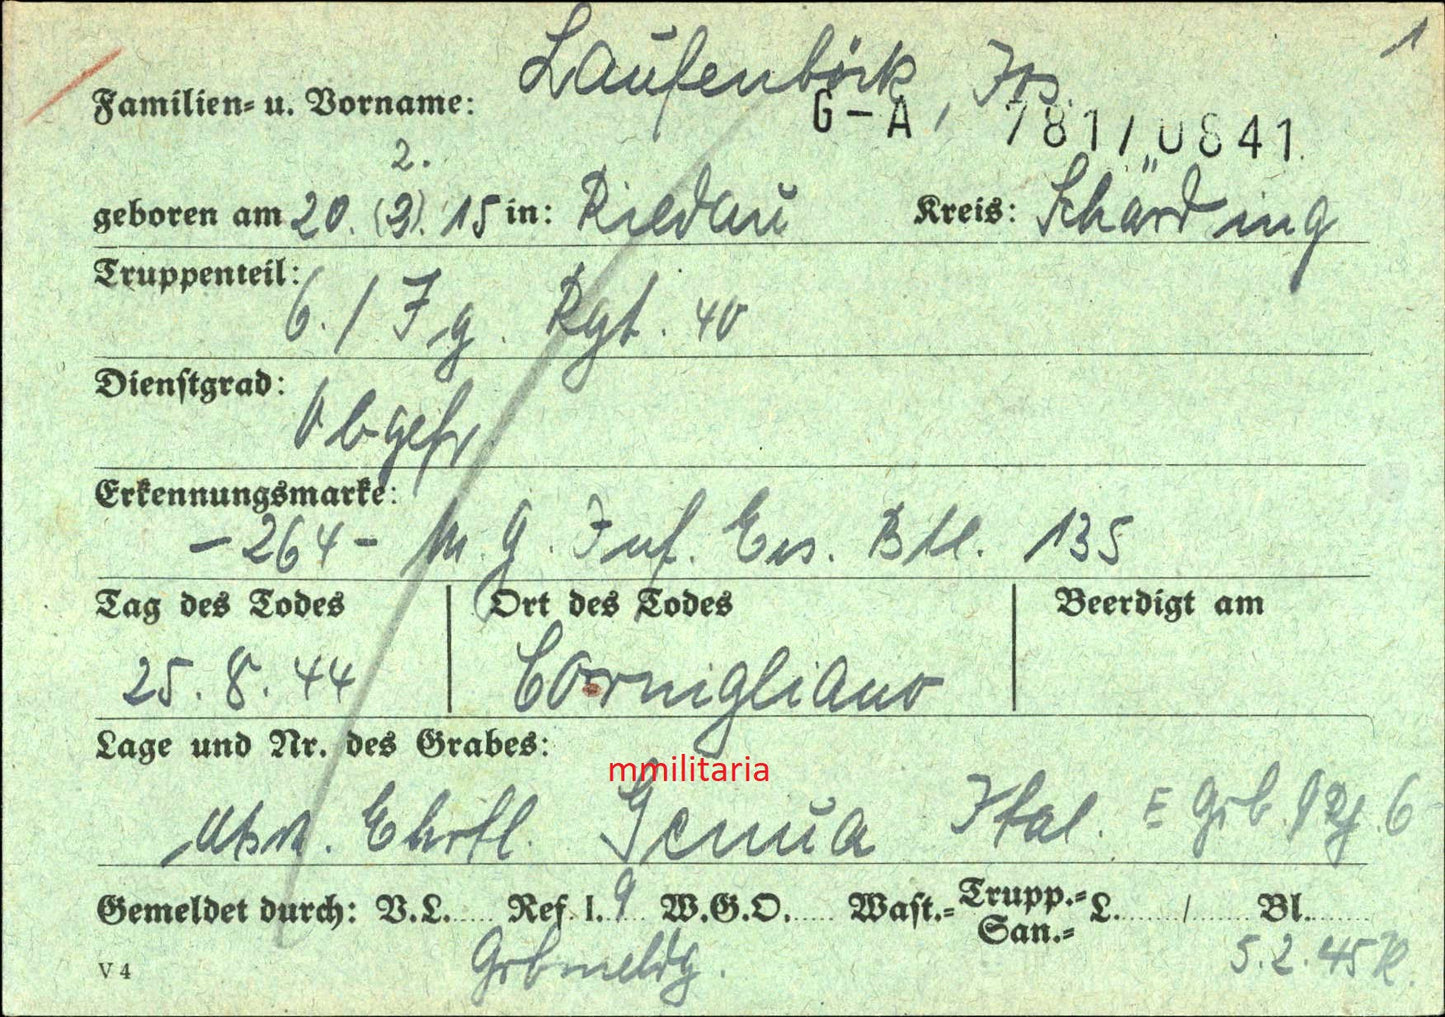 1
Familien- u. Vorname: Laufenböck, Jos.
G-A 781/0841
2.
geboren am 20. (3). 15 in: Riedau Kreis: Schärding
Truppenteil:
6. / Jg. Rgt. 40
Dienstgrad:
Obgefr.
Erkennungsmarke:
-264- M.G. Inf. Ers. Btl. 135
Tag des Todes Ort des Todes Beerdigt am
25. 8. 44 Cornigliano
Lage und Nr. des Grabes:
mmilitaria
Ehrtl. Genua Ital. E Grb. 6
Gemeldet durch: V.L. Ref. l. 9 W.G.O. Wast.- Trupp.- San.- L. / Bl.
Grbmeldg. 5. 2. 45
V 4